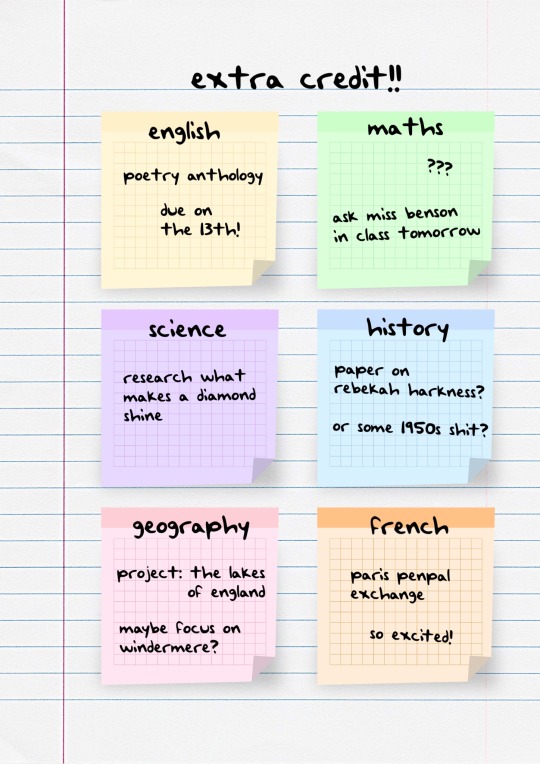 extra credit!!
english
poetry anthology
due on
the 13th!
maths
???
ask miss benson
in class tomorrow
science
research what
makes a diamond
shine
history
paper on
rebekah harkness?
or some 1950s shit?
geography
project: the lakes
of england
maybe focus on
windermere?
french
paris penpal
exchange
so excited!